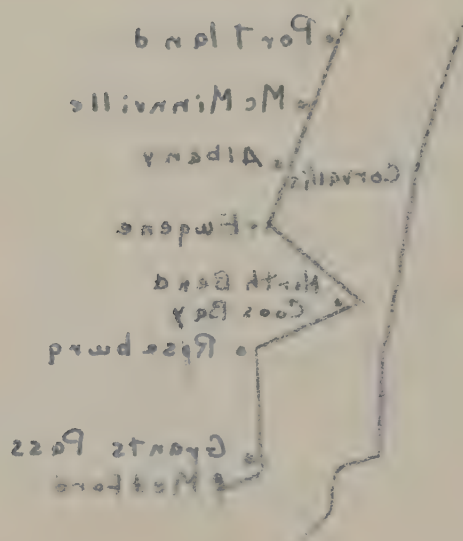 Portland
McMinnville
Albany
Corvallis
Eugene
North Bend
Coos Bay
Roseburg
Grants Pass
Medford